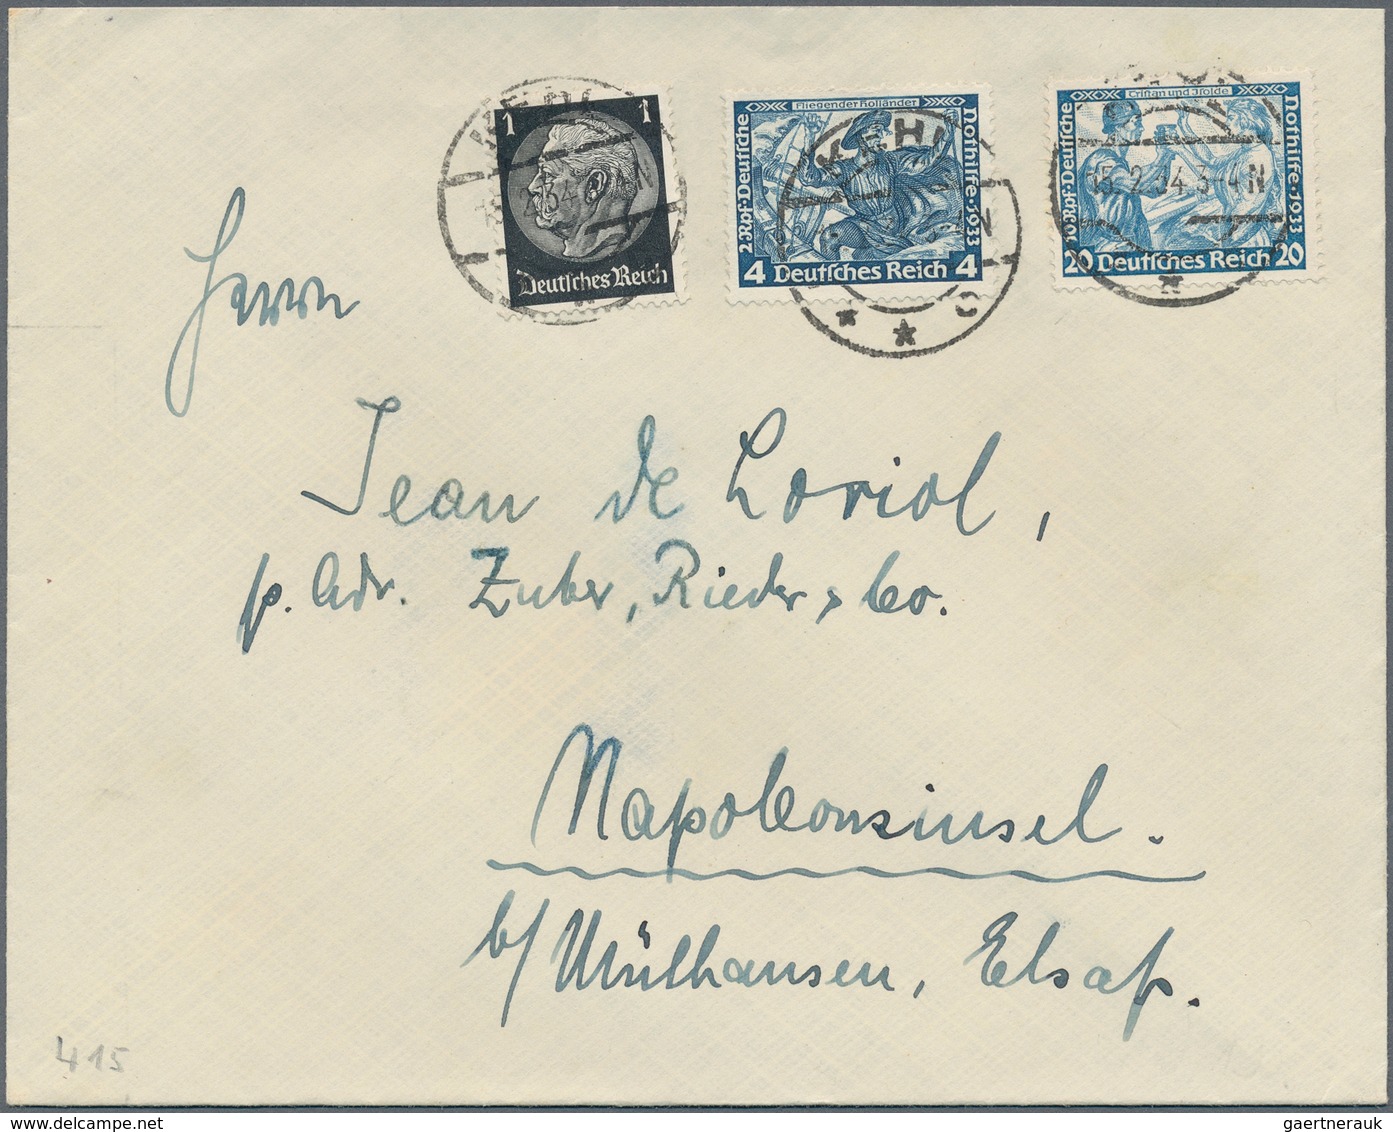 1 1
Deutsches Reich
Fliegender Holländer
2 Rpf · Deutsche
Nothilfe · 1933
4 Deutsches Reich 4
KEHL
* * c
Tristan und Isolde
10 Rpf · Deutsche
Nothilfe · 1933
20 Deutsches Reich 20
15.2.34.3-4N
Herrn
Jean de Loriol,
p. Adr. Zuber, Rieder & Co.
Napoleonsinsel.
b/ Mülhausen, Elsaß.
415
© gaertnerauk
delcampe.net